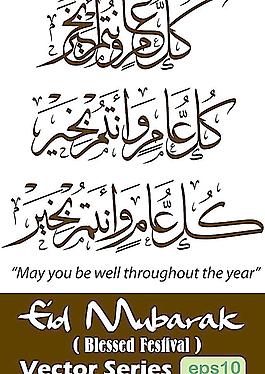 كل عام وأنتم بخير
كُل عَام وَأنتُم بخَير
كُل عَامٍ وَأنتُم بخَير
“May you be well throughout the year”
Eid Mubarak
( Blessed Festival )
Vector Series eps10